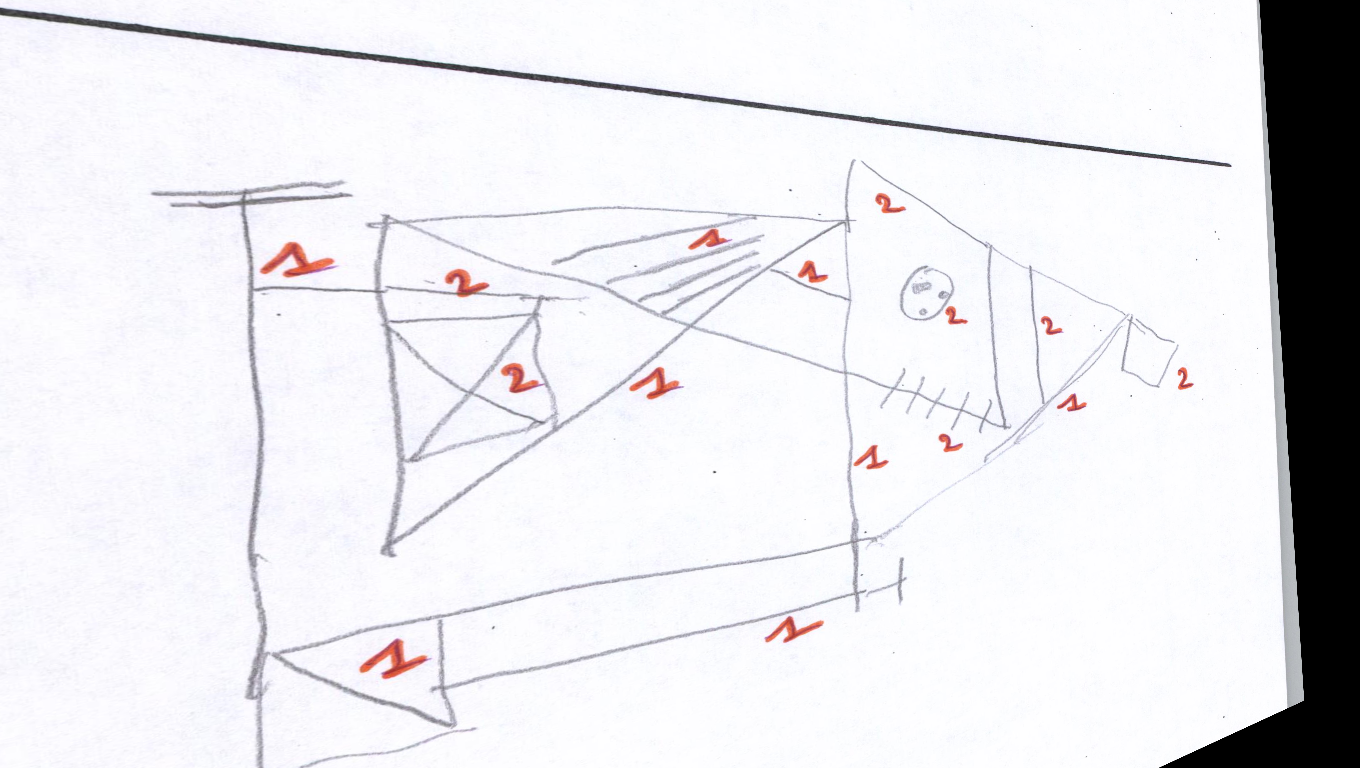 2
1
1
2
1
2
2
2
1
2
1
2
1
1
1